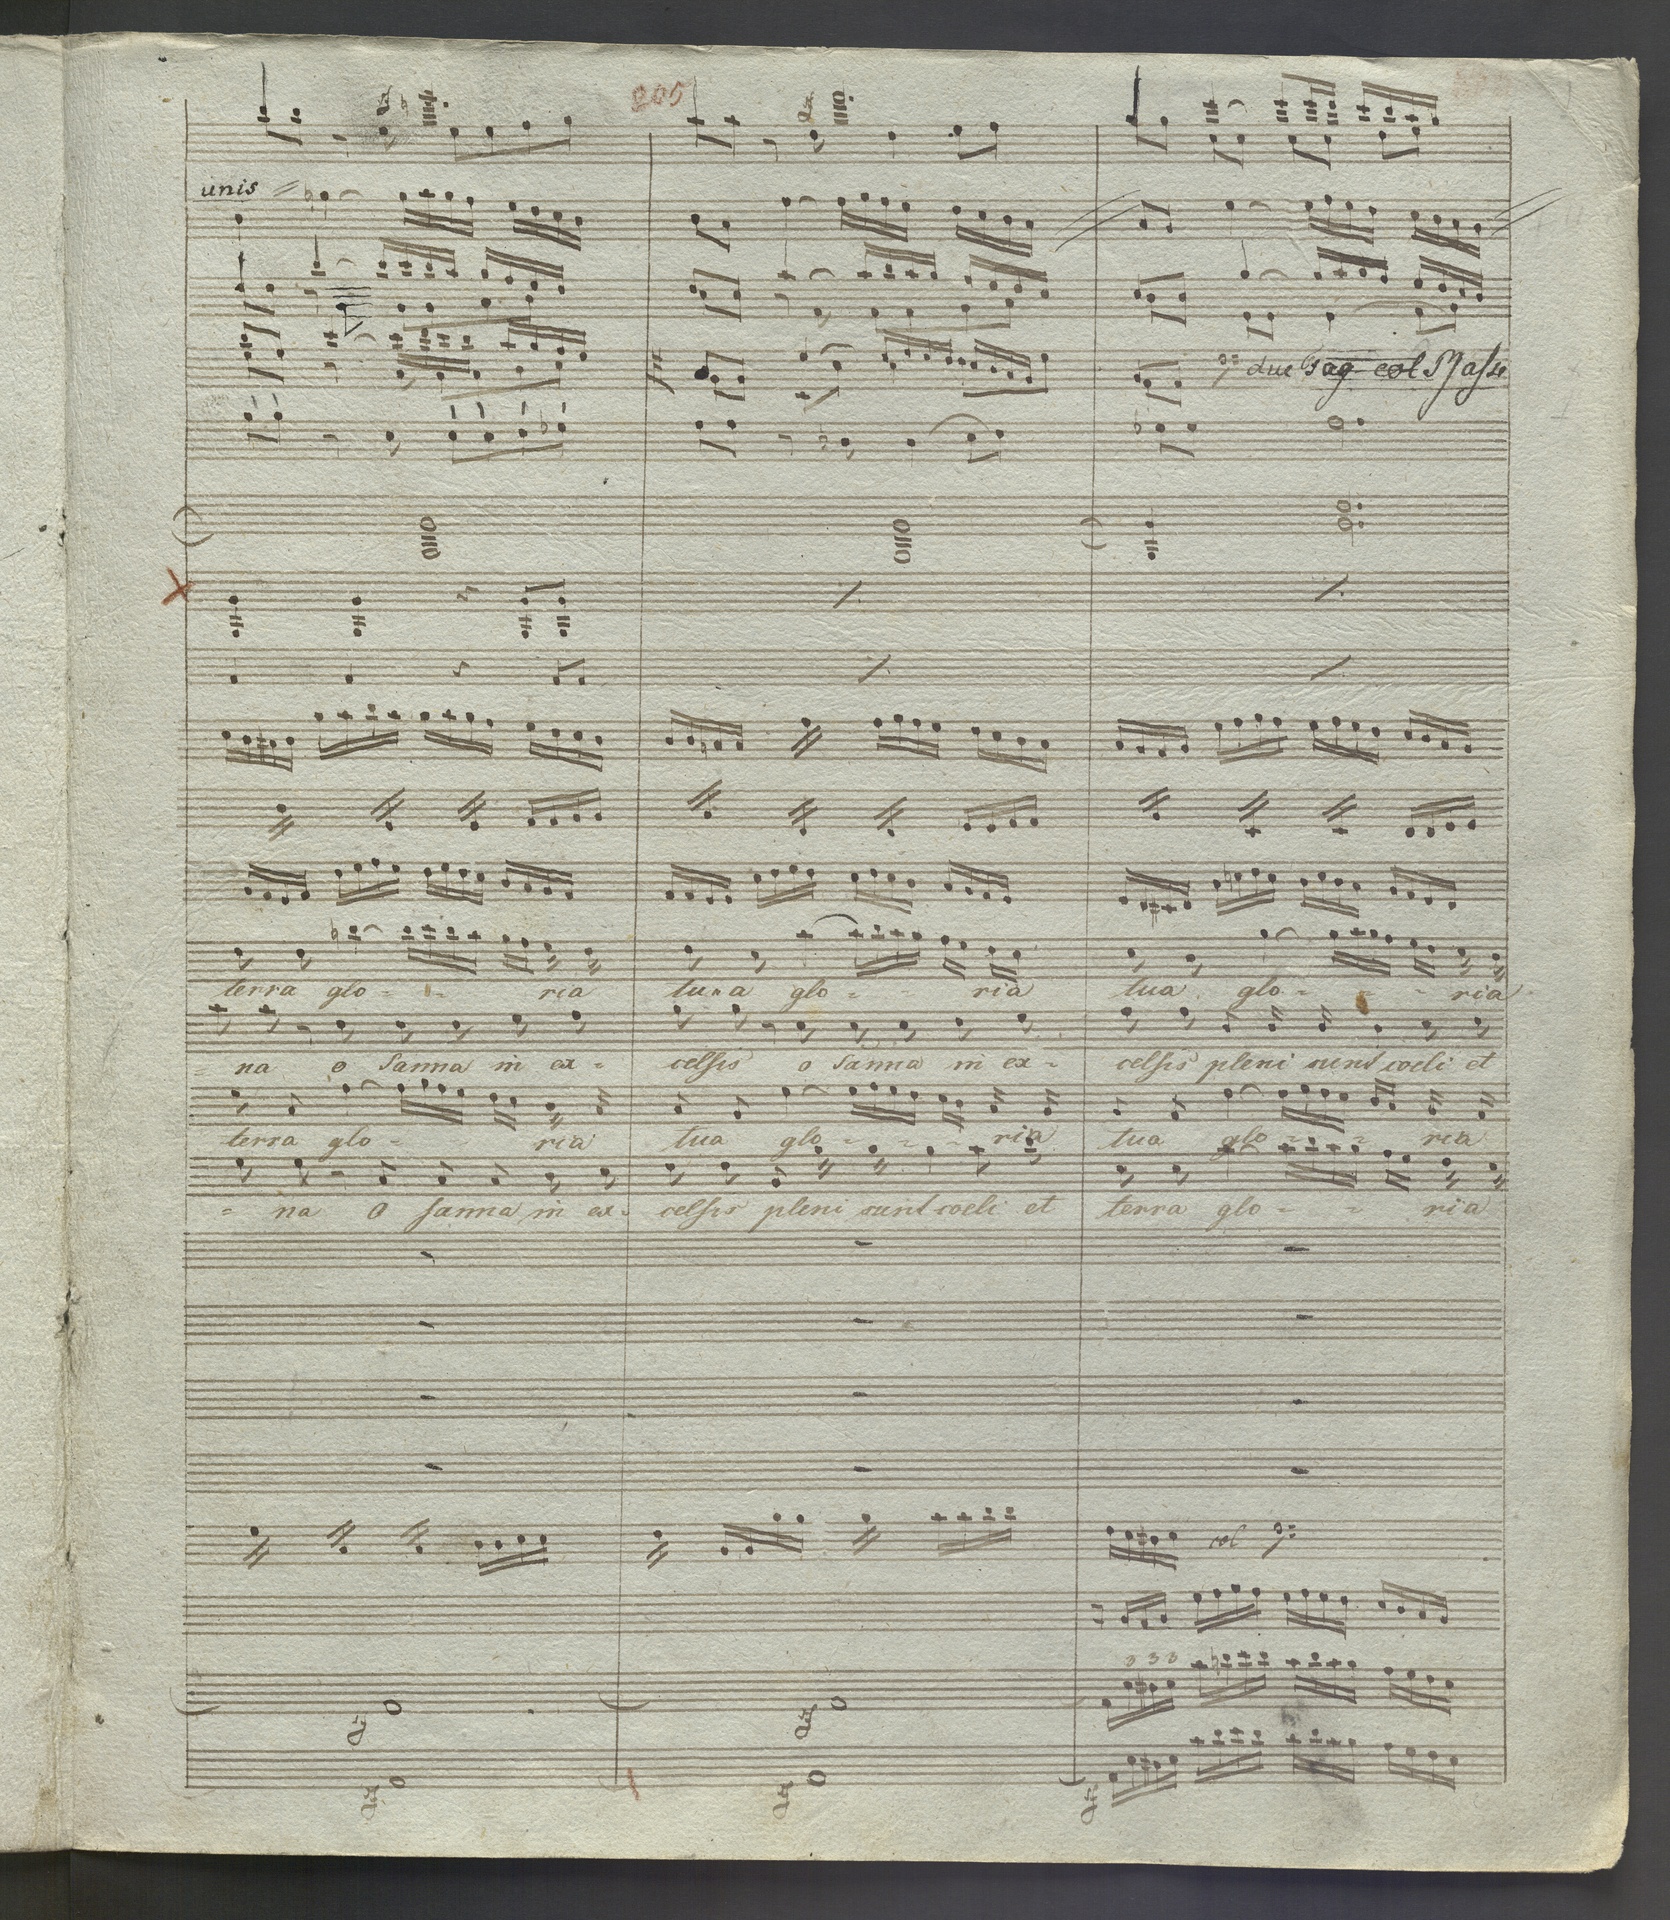 205
unis
due Fag col Basse
terra glo - - ria tua glo - - ria tua glo - - - ria
= na o sanna in ex - celsis o sanna in ex - celsis pleni sunt coeli et
terra glo - - ria tua glo - - - ria tua glo - - - ria
= na O sanna in ex - celsis pleni sunt coeli et terra glo - - ria
col
3 3 3